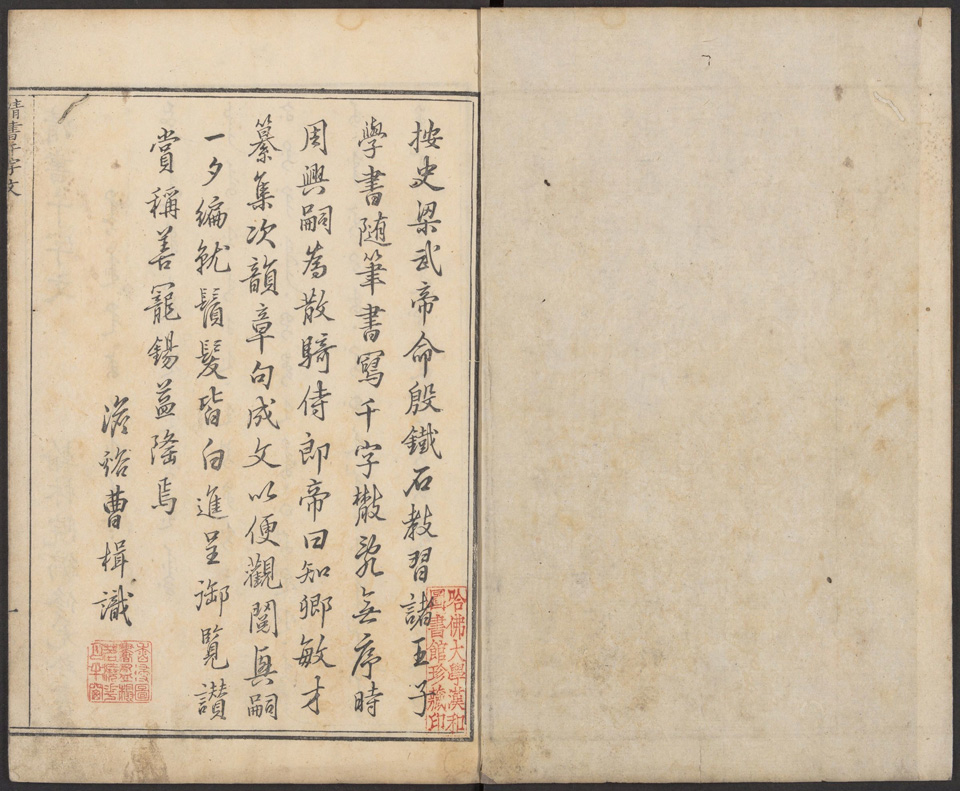 按史梁武帝命殷鐵石教習諸王子
學書随筆書寫千字散亂無序時
周興嗣為散騎侍郎帝曰知卿敏才
纂集次韻章句成文以便觀閱興嗣
一夕編就鬚髮皆白進呈御覽讃
賞稱善寵錫益隆焉
澹裕曹楫識
清書千字文
一
哈佛大學漢和
圖書館珍藏印